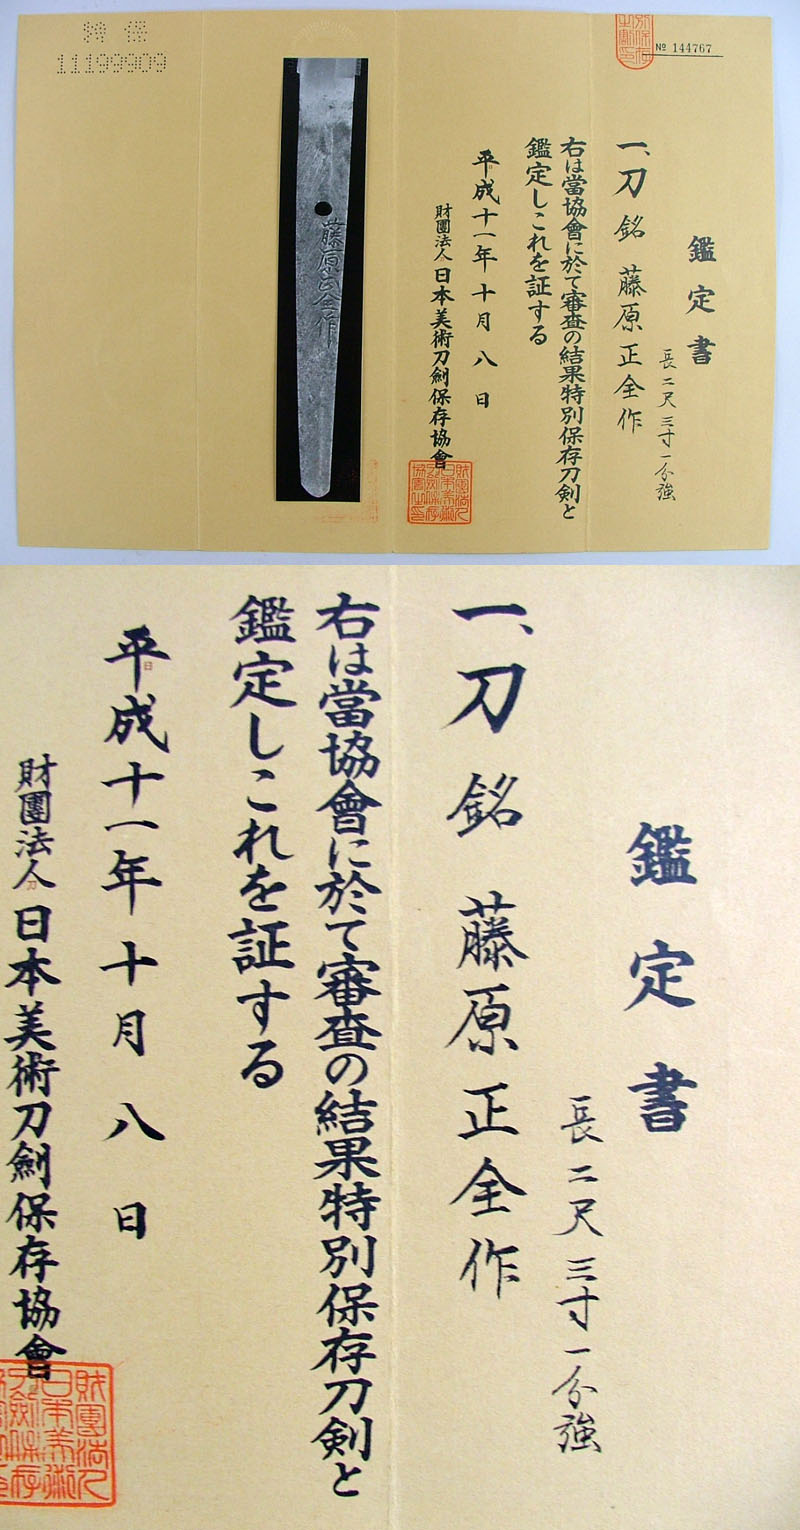 鑑定書
長二尺三寸一分強
一、刀 銘 藤原正全作
右は當協會に於て審査の結果特別保存刀剣と
鑑定しこれを証する
平成十一年十月八日
財團法人日本美術刀劍保存協會
№ 144767
藤原正全作
特保
11199909
鑑定書
長二尺三寸一分強
一、刀 銘 藤原正全作
右は當協會に於て審査の結果特別保存刀剣と
鑑定しこれを証する
平成十一年十月八日
財團法人日本美術刀劍保存協會